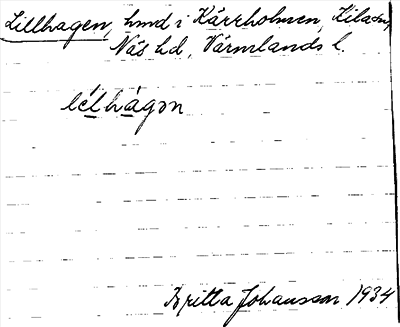 Lillhagen, hmd i Kärrholmen, Kila sn,
Näs hd, Värmlands l.
lélhágən
Britta Johansson 1934